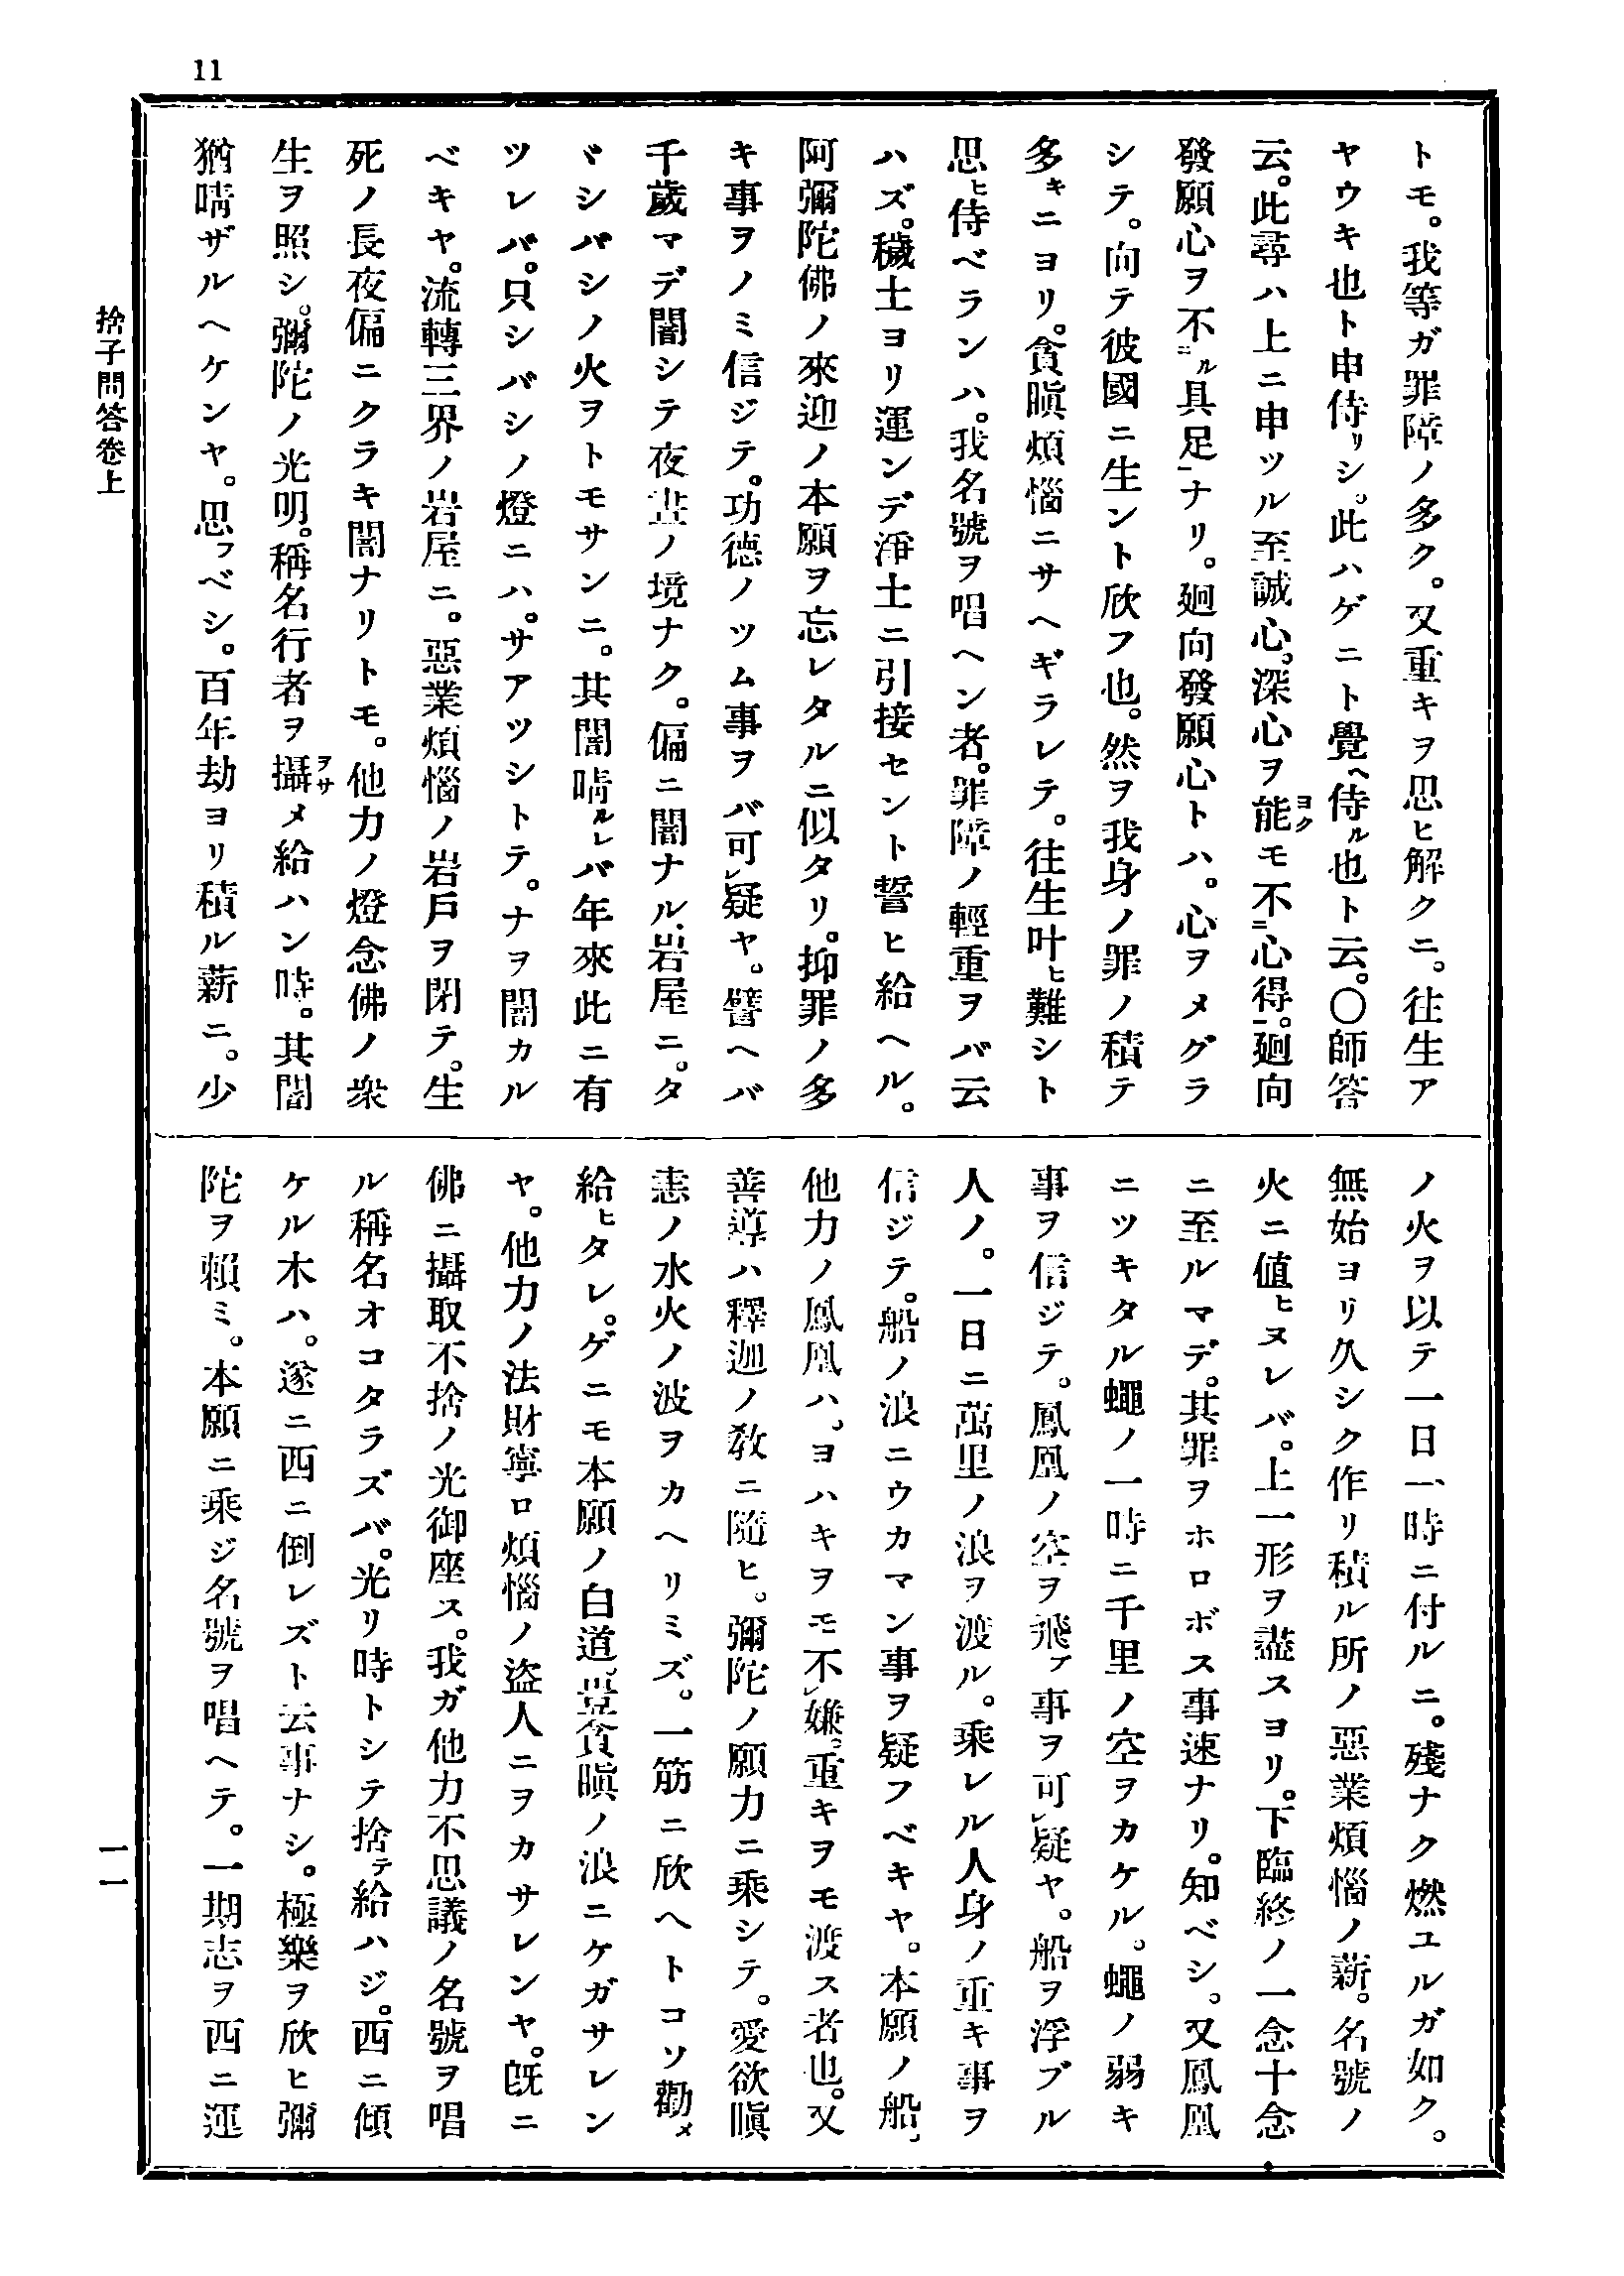 11
トモ。我等ガ罪障ノ多ク。又重キヲ思ヒ解クニ。往生ア
ヤウキ也ト申侍リシ。此ハゲニト覺ヘ侍ル也ト云。〇師答
云。此尋ハ上ニ申ツル至誠心。深心ヲ能ヨクモ不二心得一。廻向
發願心ヲ不ル二具足一ナリ。廻向發願心トハ。心ヲメグラ
シテ。向テ彼國ニ生ント欣フ也。然ヲ我身ノ罪ノ積テ
多キニヨリ。貪瞋煩惱ニサヘギラレテ。往生叶ヒ難シト
思ヒ侍ベランハ。我名號ヲ唱ヘン者。罪障ノ輕重ヲバ云
ハズ。穢土ヨリ運ンデ淨土ニ引接セント誓ヒ給ヘル。
阿彌陀佛ノ來迎ノ本願ヲ忘レタルニ似タリ。抑罪ノ多
キ事ヲノミ信ジテ。功德ノツム事ヲバ可レ疑ヤ。譬ヘバ
千歲マデ闇シテ夜晝ノ境ナク。偏ニ闇ナル岩屋ニ。タ
ヾシバシノ火ヲトモサンニ。其闇晴ルレバ年來此ニ有
ツレバ。只シバシノ燈ニハ。サアツシトテ。ナヲ闇カル
ベキヤ。流轉三界ノ岩屋ニ。惡業煩惱ノ岩戶ヲ閉テ。生
死ノ長夜偏ニクラキ闇ナリトモ。他力ノ燈念佛ノ衆
生ヲ照シ。彌陀ノ光明。稱名行者ヲ攝ヲサメ給ハン時。其闇
猶晴ザルヘケンヤ。思フベシ。百年劫ヨリ積ル薪ニ。少
ノ火ヲ以テ一日一時ニ付ルニ。殘ナク燃ユルガ如ク。
無始ヨリ久シク作リ積ル所ノ惡業煩惱ノ薪。名號ノ
火ニ値ヒヌレバ。上一形ヲ盡スヨリ。下臨終ノ一念十念
ニ至ルマデ。其罪ヲホロボス事速ナリ。知ベシ。又鳳凰
ニツキタル蠅ノ一時ニ千里ノ空ヲカケル。蠅ノ弱キ
事ヲ信ジテ。鳳凰ノ空ヲ飛ブ事ヲ可レ疑ヤ。船ヲ浮ブル
人ノ。一日ニ萬里ノ浪ヲ渡ル。乘レル人身ノ重キ事ヲ
信ジテ。船ノ浪ニウカマン事ヲ疑フベキヤ。本願ノ船。
他力ノ鳳凰ハ。ヨハキヲモ不レ嫌。重キヲモ渡ス者也。又
善導ハ釋迦ノ敎ニ隨ヒ。彌陀ノ願力ニ乘シテ。愛欲瞋
恚ノ水火ノ波ヲカヘリミズ。一筋ニ欣ヘトコソ勸メ
給ヒタレ。ゲニモ本願ノ白道。豈貪瞋ノ浪ニケガサレン
ヤ。他力ノ法財寧ロ煩惱ノ盜人ニヲカサレンヤ。旣ニ
佛ニ攝取不捨ノ光御座ス。我ガ他力不思議ノ名號ヲ唱
ル稱名オコタラズバ。光リ時トシテ捨テ給ハジ。西ニ傾
ケル木ハ。遂ニ西ニ倒レズト云事ナシ。極樂ヲ欣ヒ彌
陀ヲ賴ミ。本願ニ乘ジ名號ヲ唱ヘテ。一期志ヲ西ニ運
捨子問答卷上
一一